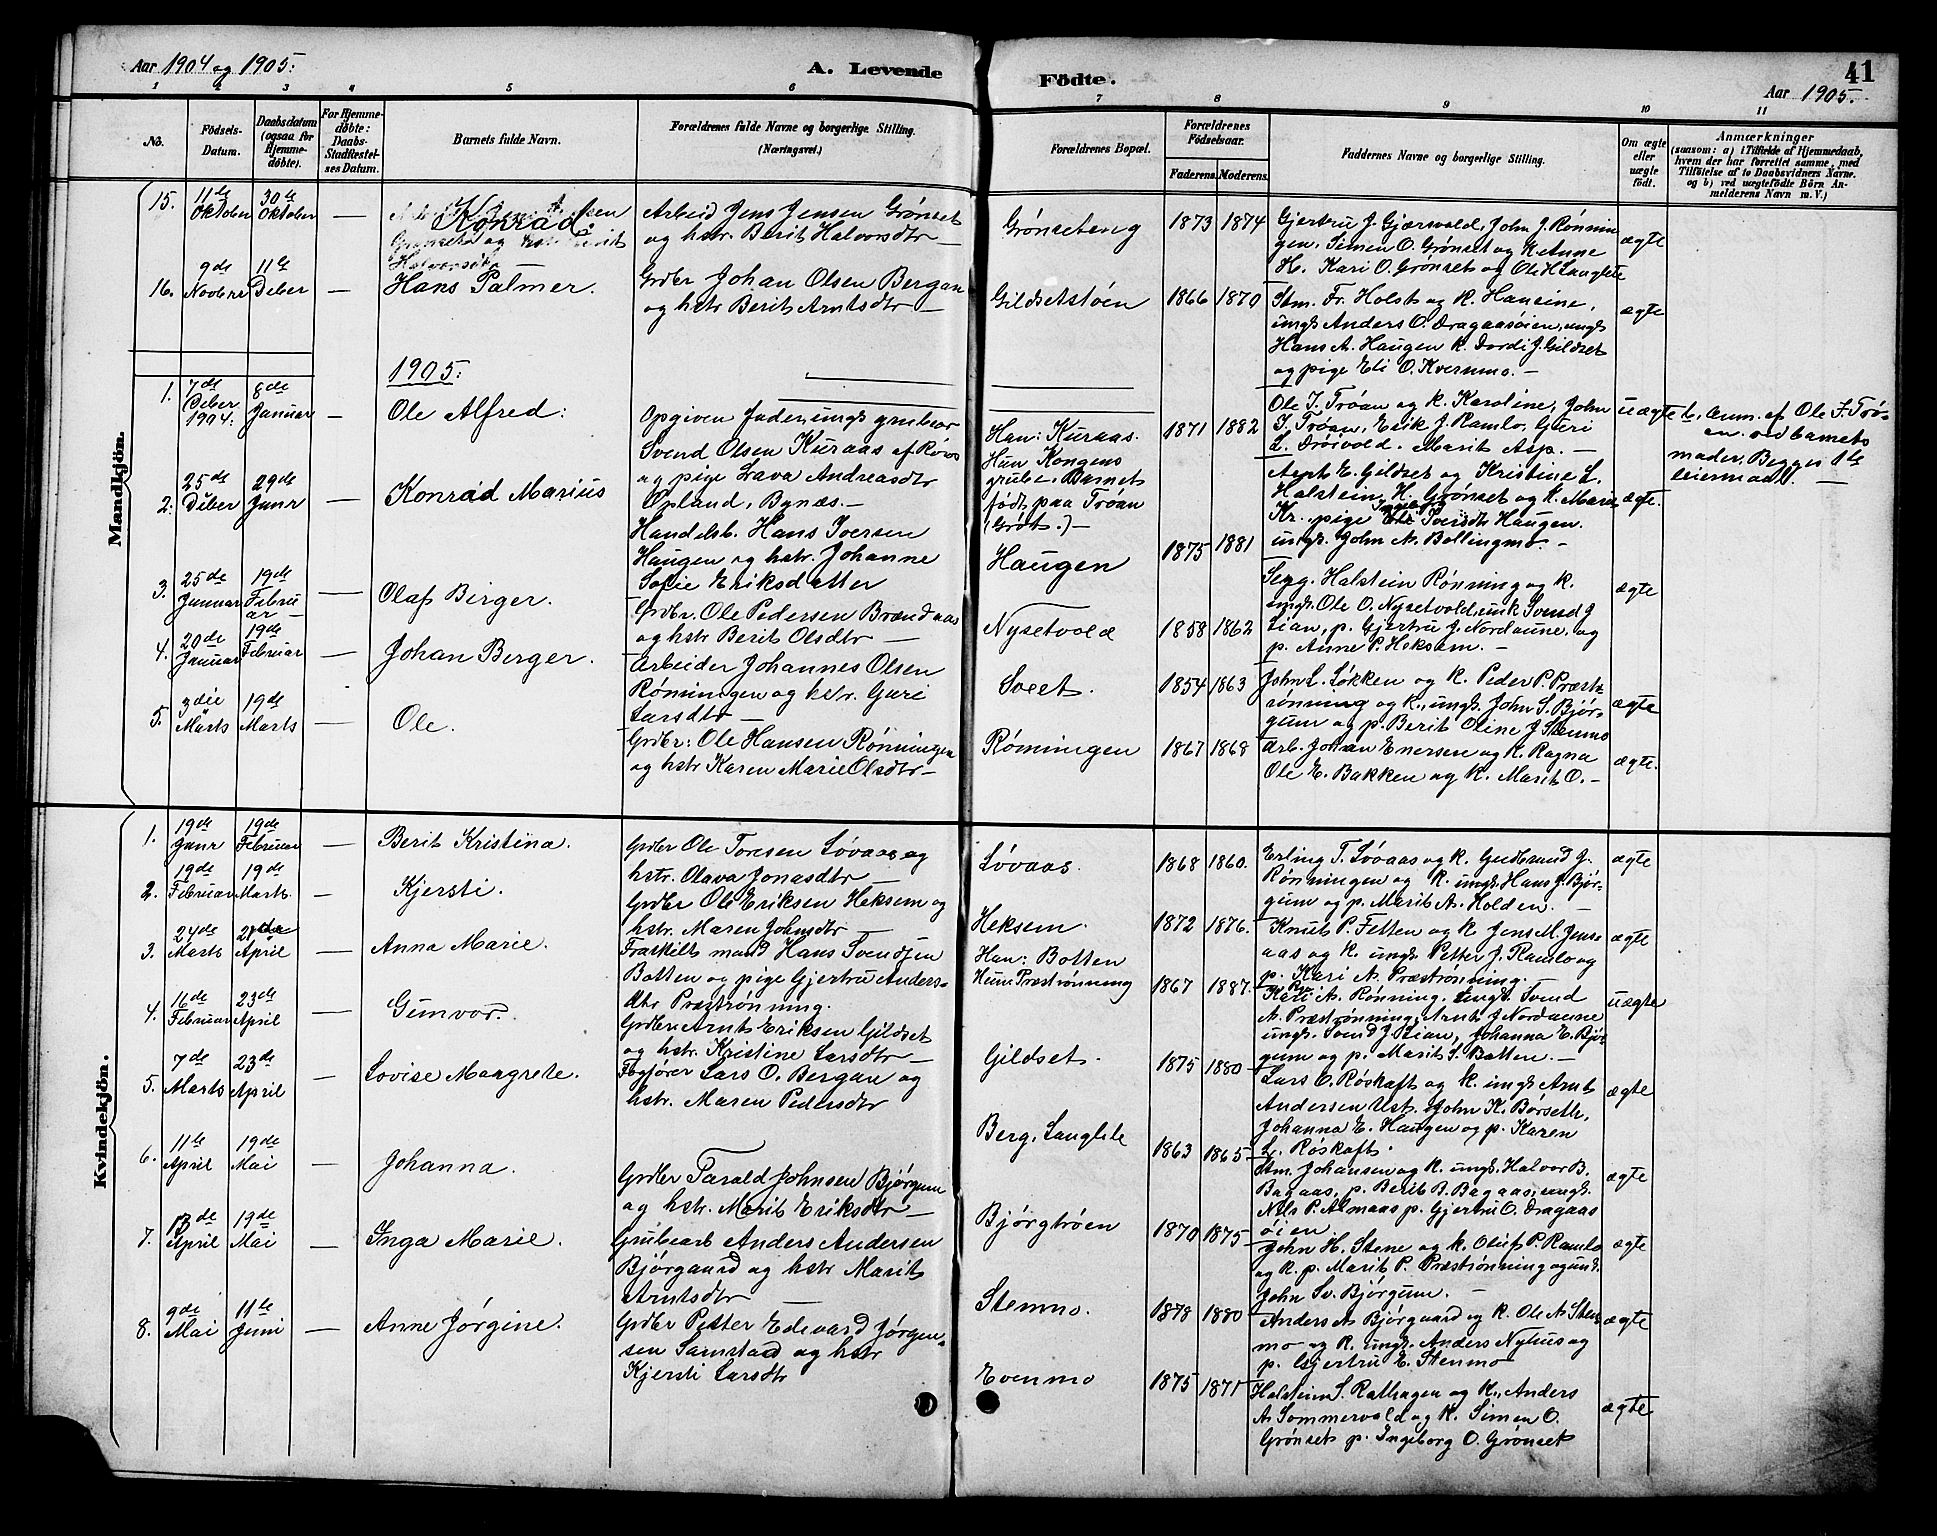 Aar 1904 og 1905.
A. Levende
Födte.
41
Aar 1905.
1 2 3 4 5 6 7 8 9 10 11
No.
Födsels-
Datum.
Daabsdatum
(ogsaa for
Hjemme-
døbte).
For Hjemme-
døbte:
Daabs-
Stadfæstel-
ses Datum.
Barnets fulde Navn.
Forældrenes fulde Navne og borgerlige Stilling.
(Næringsvei.)
Forældrenes Bopæl.
Forældrenes
Födselsaar.
Faderens. Moderens.
Faddernes Navne og borgerlige Stilling.
Om ægte
eller
uægte
født.
Anmærkninger
(saasom: a) i Tilfælde af Hjemmedaab,
hvem der har forrettet samme, med
Tilføielse af to Daabsvidners Navne.
og b) ved uægtefødte Börn An-
melderens Navn m. V.)
Mandkjön.
15. 11te Oktober 30te Oktober — Konrad.
Arbeid Jens Jensen Grønset
og hstr. Berit Halvorsdtr —
Grønseteng 1873 1874
Gjertru J. Gjærvold, John J. Rønnin
gen, Simen O. Grønset og k. Anne
H. Kari O. Grønset og Ole H. Langlete
ægte
16. 9de Novbre 11te Deber — Hans Palmer.
Grdbr Johan Olsen Bergan
og hstr Berit Arntsdtr —
Gildsetstøen 1866 1870
Stm. Fr. Holst og k. Hansine,
ungk Anders O. Dragaasøien, ungk
Hans A. Haugen k. Dordi J. Gildset
og pige Eli O. Kvernmo. —
ægte
1905:
1. 7de Deber 1994: 8de Januar — Ole Alfred:
Opgiven fader, ungk grubear
Svend Olsen Kuraas af Røros
og pige Lava Andreasdtr
Opland, Bynæs. —
Han: Kuraas.
Hun Kongens
grube, Barnet
født paa Trøan
(Grøt.) —
1871 1882
Ole J. Trøan og k. Karoline, John
J. Trøan, Erik J. Ramlo, Guri
L. Drøivold. Marit Asp. —
uægte
b. Anm. af Ole J. Trø-
an. ved barnets
moder, Begges 1te
leiermaal. —
2. 25de Deber 29de Janr — Konrad Marius
Handelsb. Hans Iversen
Haugen og hstr. Johanne
Sofie Eriksdatter
Haugen 1875 1881
Arnt E. Gildset og Kristine L.
Halstein H. Grønset og k. Maren
Kr., pige Ingeborg Iversdtr Haugen.
ungk. John A. Bollingmo. —
ægte.
3. 25de Januar 19de Februar — Olaf Birger.
Grdbr. Ole Pedersen Brændaas
og hstr Berit Olsdtr —
Nysetvold 1858 1862
Segg. Halstein Rønning og k.
ungk. Ole O. Nysetvold, unk Svend J
Lian, p. Gjertru J. Nordaune, og
p. Anne P. Heksem. —
ægte
4. 20de Januar 19de Februar — Johan Berger.
Arbeider Johannes Olsen
Rønningen og hstr. Guri
Larsdtr —
Sveet. 1854 1863
John L. Løkken og k. Peder P. Præst-
rønning og k., ungk. John S. Bjør-
gum og p. Berit Oline J Stenmo
ægte
5. 3die Marts 19de Marts — Ole.
Grdbr: Ole Hansen Rønningen
og hstr Karen Marie Olsdtr —
Rønningen 1867 1868
Arb. Johan Enersen og k. Ragna
Ole E. Bakken og k. Marit O. —
ægte.
Kvindekjön.
1. 19de Janr 19de Februar — Berit Kristina.
Grdbr Ole Toresen Løvaas og
hstr. Olava Jonasdtr —
Løvaas. 1868 1860.
Erling T. Løvaas og k. Gudbrand J.
Rønningen og k. ungk. Hans J. Bjør-
gum og p. Marit A. Holden. —
ægte
2. 19de Februar 19de Marts. — Kjersti.
Grdbr Ole Eriksen Heksem og
hstr. Maren Johnsdtr —
Heksem. 1872 1876.
Knut P. Fetten og k Jens M. Jense
aas og k. ungk. Petter J. Ramlo og
p. Kari A. Præstrønning. —
ægte
3. 24de Marts April — Anna Marie.
Fraskilt mand Hans Svendsen
Botten og pige Gjertru Anders-
dtr Præstrønning.
Han: Botten
Hun: Præstrønning 1867 1887.
Kari A. Rønning, Ungk. Svend
A. Præstrønning, Arnt J Nordaune
ungk. Svend J Lian, Johanna E. Bjør-
gum og p. Marit S. Botten. —
uægte
4. 16de Februar 23de April — Gunvor.
Grdbr Arnt Eriksen Gildset
og hstr. Kristine Larsdtr —
Gildset. 1875 1880
Lars O. Røskaft og k. ungk Arnt
Andersen Ust. John K. Børseth,
Johanna E. Haugen og p. Karen
L. Røskaft.
ægte
5. 7de Marts 23de April — Lovise Margrete.
Lars O. Bergan og
hstr. Maren Pedersdtr
Berg, Langlete 1863 1865
Stm. Johansen og k. ungk. Halvor B.
Bagaas, p. Berit B. Bagaas, ungk.
Nils P. Almaas p. Gjertru O. Dragaas
øien.
ægte
6. 11te April 19de Mai — Johanna.
Grdbr Tarald Johnsen Bjørgum
og hstr. Marit Eriksdtr —
Bjørgtrøen 1870 1875
John H. Stene og k. Oluf P. Ramlo
og k. p. Marit P. Præstrønning og und.
John Sv. Bjørgum. —
ægte
7. 13de April 19de Mai — Inga Marie.
Grubearb Anders Andersen
Bjørgaard og hstr Marit
Arntsdtr —
Stenmo. 1878 1880
Anders A Bjørgaard og k. Ole A. Sten
mo og k. ungk. Anders Nyhus og
p. Gjertru E. Stenmo
ægte
8. 9de Mai 11te Juni — Anne Jørgine.
Grdbr Petter Edevard Jørgen-
sen Samstad og hstr
Kjersti Larsdtr
Evenmo 1875 1871
Halstein S. Rathagen og k., Anders
A. Sommervold og k. Simen O.
Grønset p. Ingeborg O. Grønset
ægte